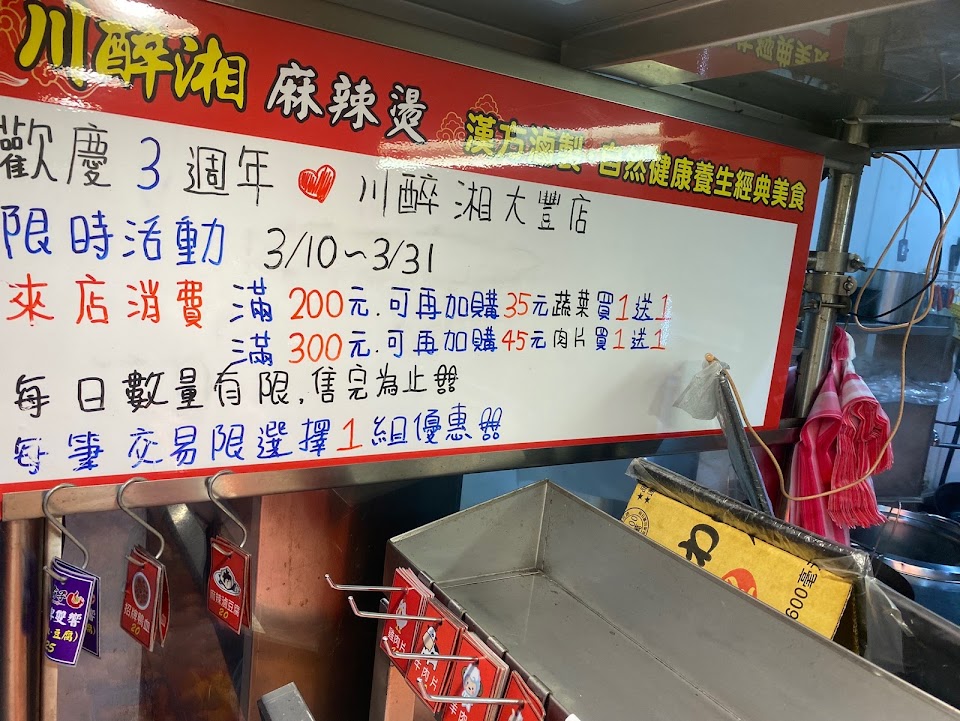 川醉湘 麻辣燙 漢方滷製 自然健康養生經典美食
歡慶3週年 川醉湘大豐店
限時活動 3/10~3/31
來店消費 滿200元.可再加購35元蔬菜買1送1
滿300元.可再加購45元肉片買1送1
每日數量有限,售完為止!!!
每筆交易限選擇1組優惠!!!
雙響
豆腐)
招牌鴨血
20
麻辣滷豆腐
20
雞肉片
牛肉片
羊肉
わ
600毫